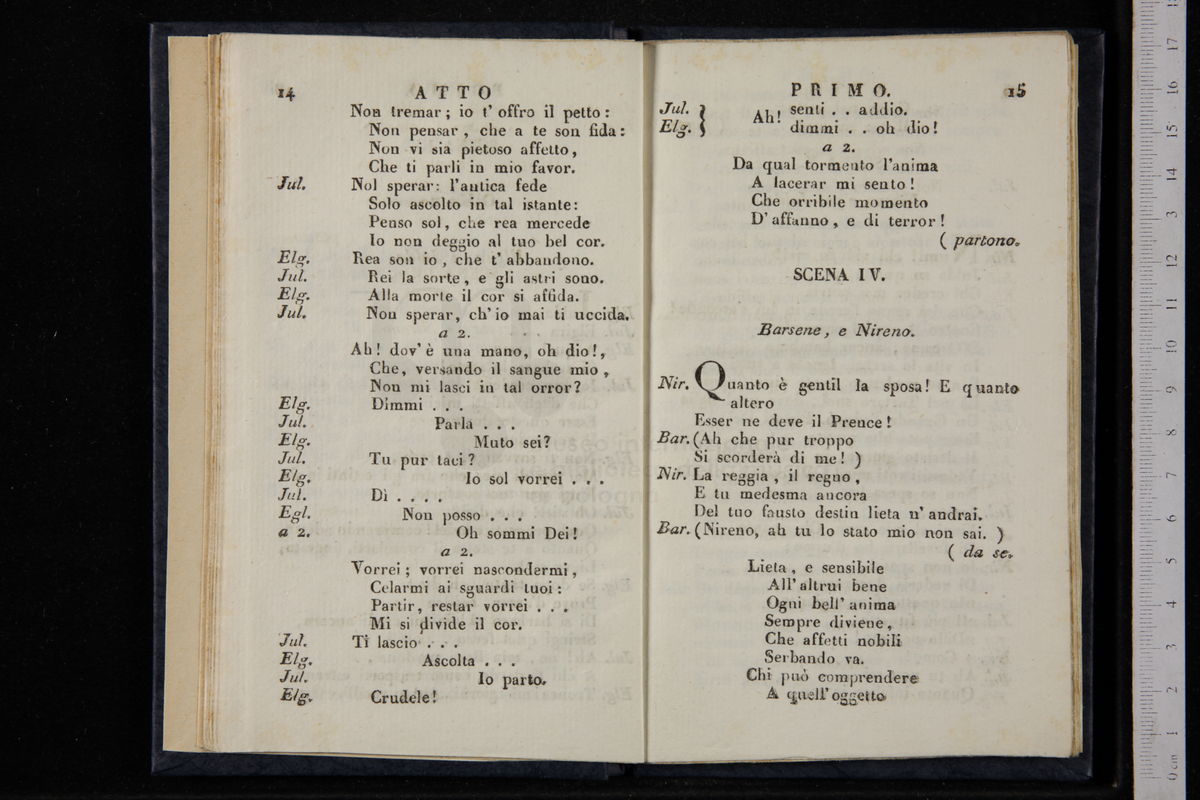 14 ATTO
Non tremar; io t' offro il petto:
Non pensar, che a te son fida:
Non vi sia pietoso affetto,
Che ti parli in mio favor.
Jul. Nol sperar: l'antica fede
Solo ascolto in tal istante:
Penso sol, che rea mercede
Io non deggio al tuo bel cor.
Elg. Rea son io, che t' abbandono.
Jul. Rei la sorte, e gli astri sono.
Elg. Alla morte il cor si affida.
Jul. Non sperar, ch' io mai ti uccida.
a 2.
Ah! dov' è una mano, oh dio!,
Che, versando il sangue mio,
Non mi lasci in tal orror?
Elg. Dimmi . . .
Jul. Parla . . .
Elg. Muto sei?
Jul. Tu pur taci?
Elg. Io sol vorrei . . .
Jul. Dì . . . .
Egl. Non posso . . .
a 2. Oh sommi Dei!
a 2.
Vorrei; vorrei nascondermi,
Celarmi ai sguardi tuoi:
Partir, restar vorrei . . .
Mi si divide il cor.
Jul. Ti lascio . . .
Elg. Ascolta . . .
Jul. Io parto.
Elg. Crudele!
PRIMO. 15
Jul. } Ah! senti . . addio.
Elg. } dimmi . . oh dio!
a 2.
Da qual tormento l'anima
A lacerar mi sento!
Che orribile momento
D' affanno, e di terror!
( partono.
SCENA IV.
Barsene, e Nireno.
Nir. Quanto è gentil la sposa! E quanto
altero
Esser ne deve il Prence!
Bar. (Ah che pur troppo
Si scorderà di me! )
Nir. La reggia, il regno,
E tu medesma ancora
Del tuo fausto destin lieta n' andrai.
Bar. (Nireno, ah tu lo stato mio non sai. )
( da se.
Lieta, e sensibile
All' altrui bene
Ogni bell' anima
Sempre diviene,
Che affetti nobili
Serbando va.
Chi può comprendere
A quell' oggetto
0 cm 1 2 3 4 5 6 7 8 9 10 11 12 13 14 15 16 17